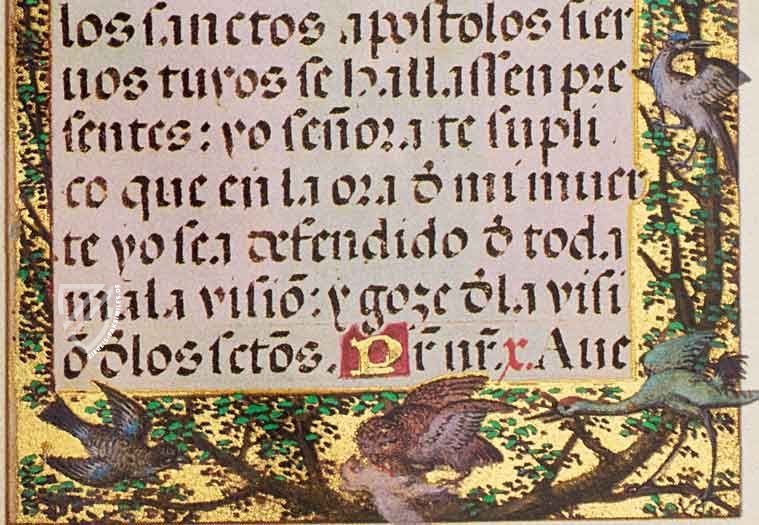 los sanctos apostolos sier
uos tuyos se hallassen pre
sentes: yo señora te supli
co que en la ora đ mi muer
te yo sea defendido đ toda
mala visiõ: y goze đla visi
õ đlos sctõs. Pr̃ nr̃. x. Aue